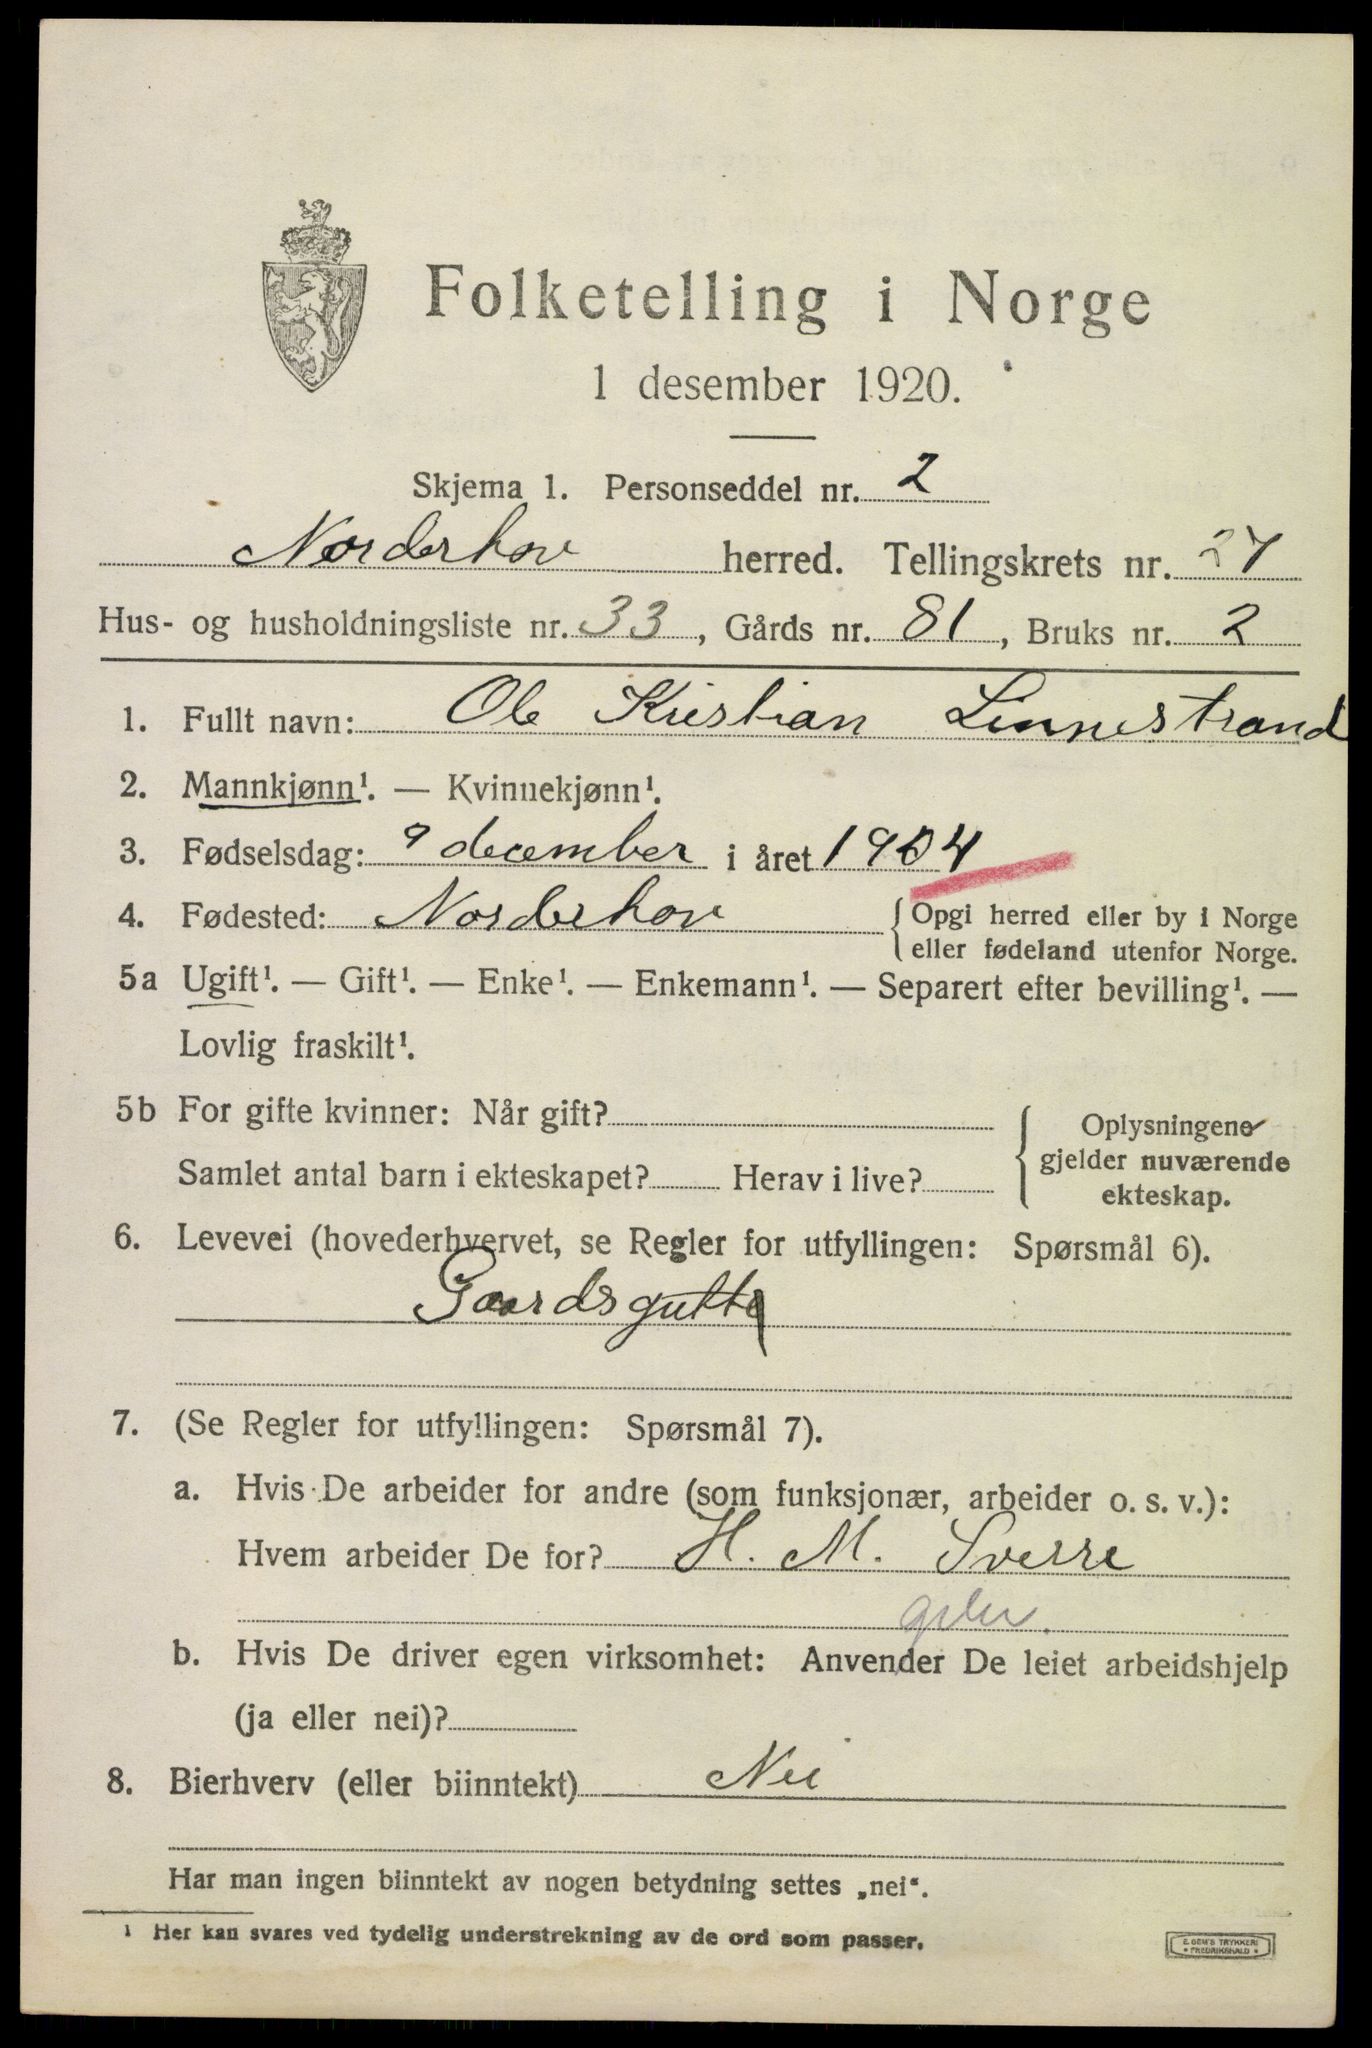 Folketelling i Norge
1 desember 1920.
Skjema 1. Personseddel nr. 2
Norderhov herred. Tellingskrets nr. 27
Hus- og husholdningsliste nr. 33, Gårds nr. 81, Bruks nr. 2
1. Fullt navn: Ole Kristian Linnestrand
2. Mannkjønn¹. — Kvinnekjønn¹.
3. Fødselsdag: 9 december i året 1904
4. Fødested: Norderhov { Opgi herred eller by i Norge
eller fødeland utenfor Norge.
5a Ugift¹. — Gift¹. — Enke¹. — Enkemann¹. — Separert efter bevilling¹. —
Lovlig fraskilt¹.
5b For gifte kvinner: Når gift? { Oplysningene
gjelder nuværende
Samlet antal barn i ekteskapet? Herav i live? ekteskap.
6. Levevei (hovederhvervet, se Regler for utfyllingen: Spørsmål 6).
Gaardsgutt
7. (Se Regler for utfyllingen: Spørsmål 7).
a. Hvis De arbeider for andre (som funksjonær, arbeider o. s. v.):
Hvem arbeider De for? H. M. Sverre
b. Hvis De driver egen virksomhet: Anvender De leiet arbeidshjelp
(ja eller nei)?
8. Bierhverv (eller biinntekt) Nei
Har man ingen biinntekt av nogen betydning settes „nei“.
¹ Her kan svares ved tydelig understrekning av de ord som passer.
E. SEM'S TRYKKERI
• FREDRIKSHALD •